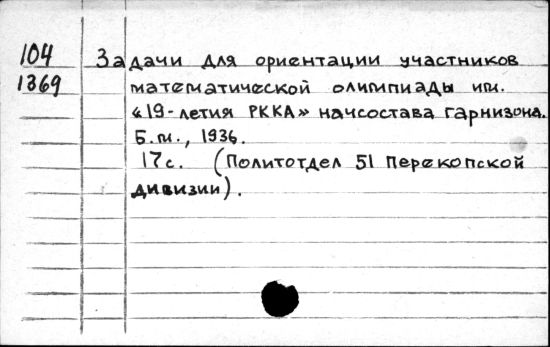 104
1369
Задачи для ориентации участников
математической олимпиады им.
«19-летия РККА» начсостава гарнизона.
Б.м., 1936.
17с. (Политотдел 51 Перекопской
дивизии).